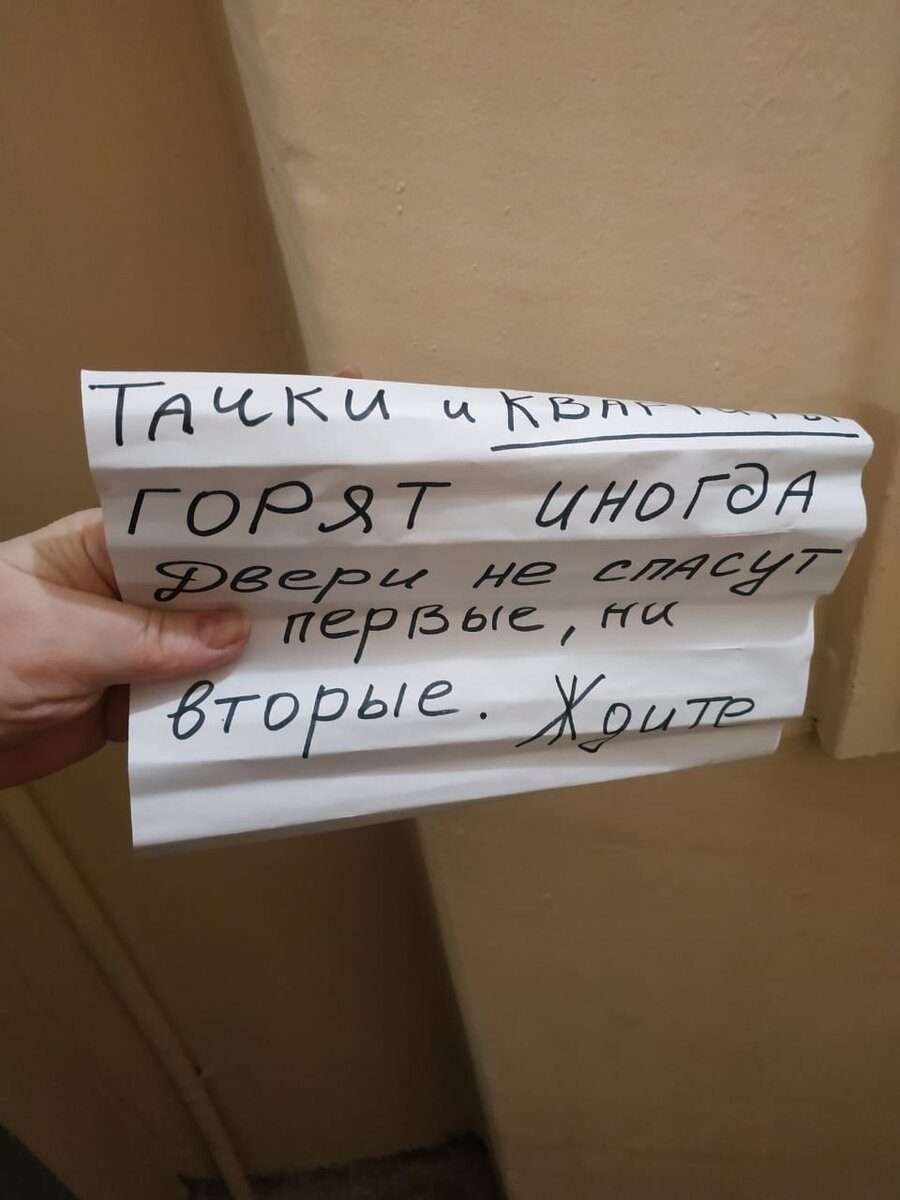 Тачки и квартиры
горят иногда
Двери не спасут
первые, ни
вторые. Ждите